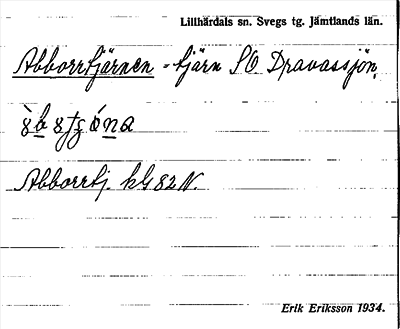 Lillhärdals sn. Svegs tg. Jämtlands län.
Abborrtjärnen - tjärn SO Dravassjön.
Abborrtj. kG 82 N.
Erik Eriksson 1934.